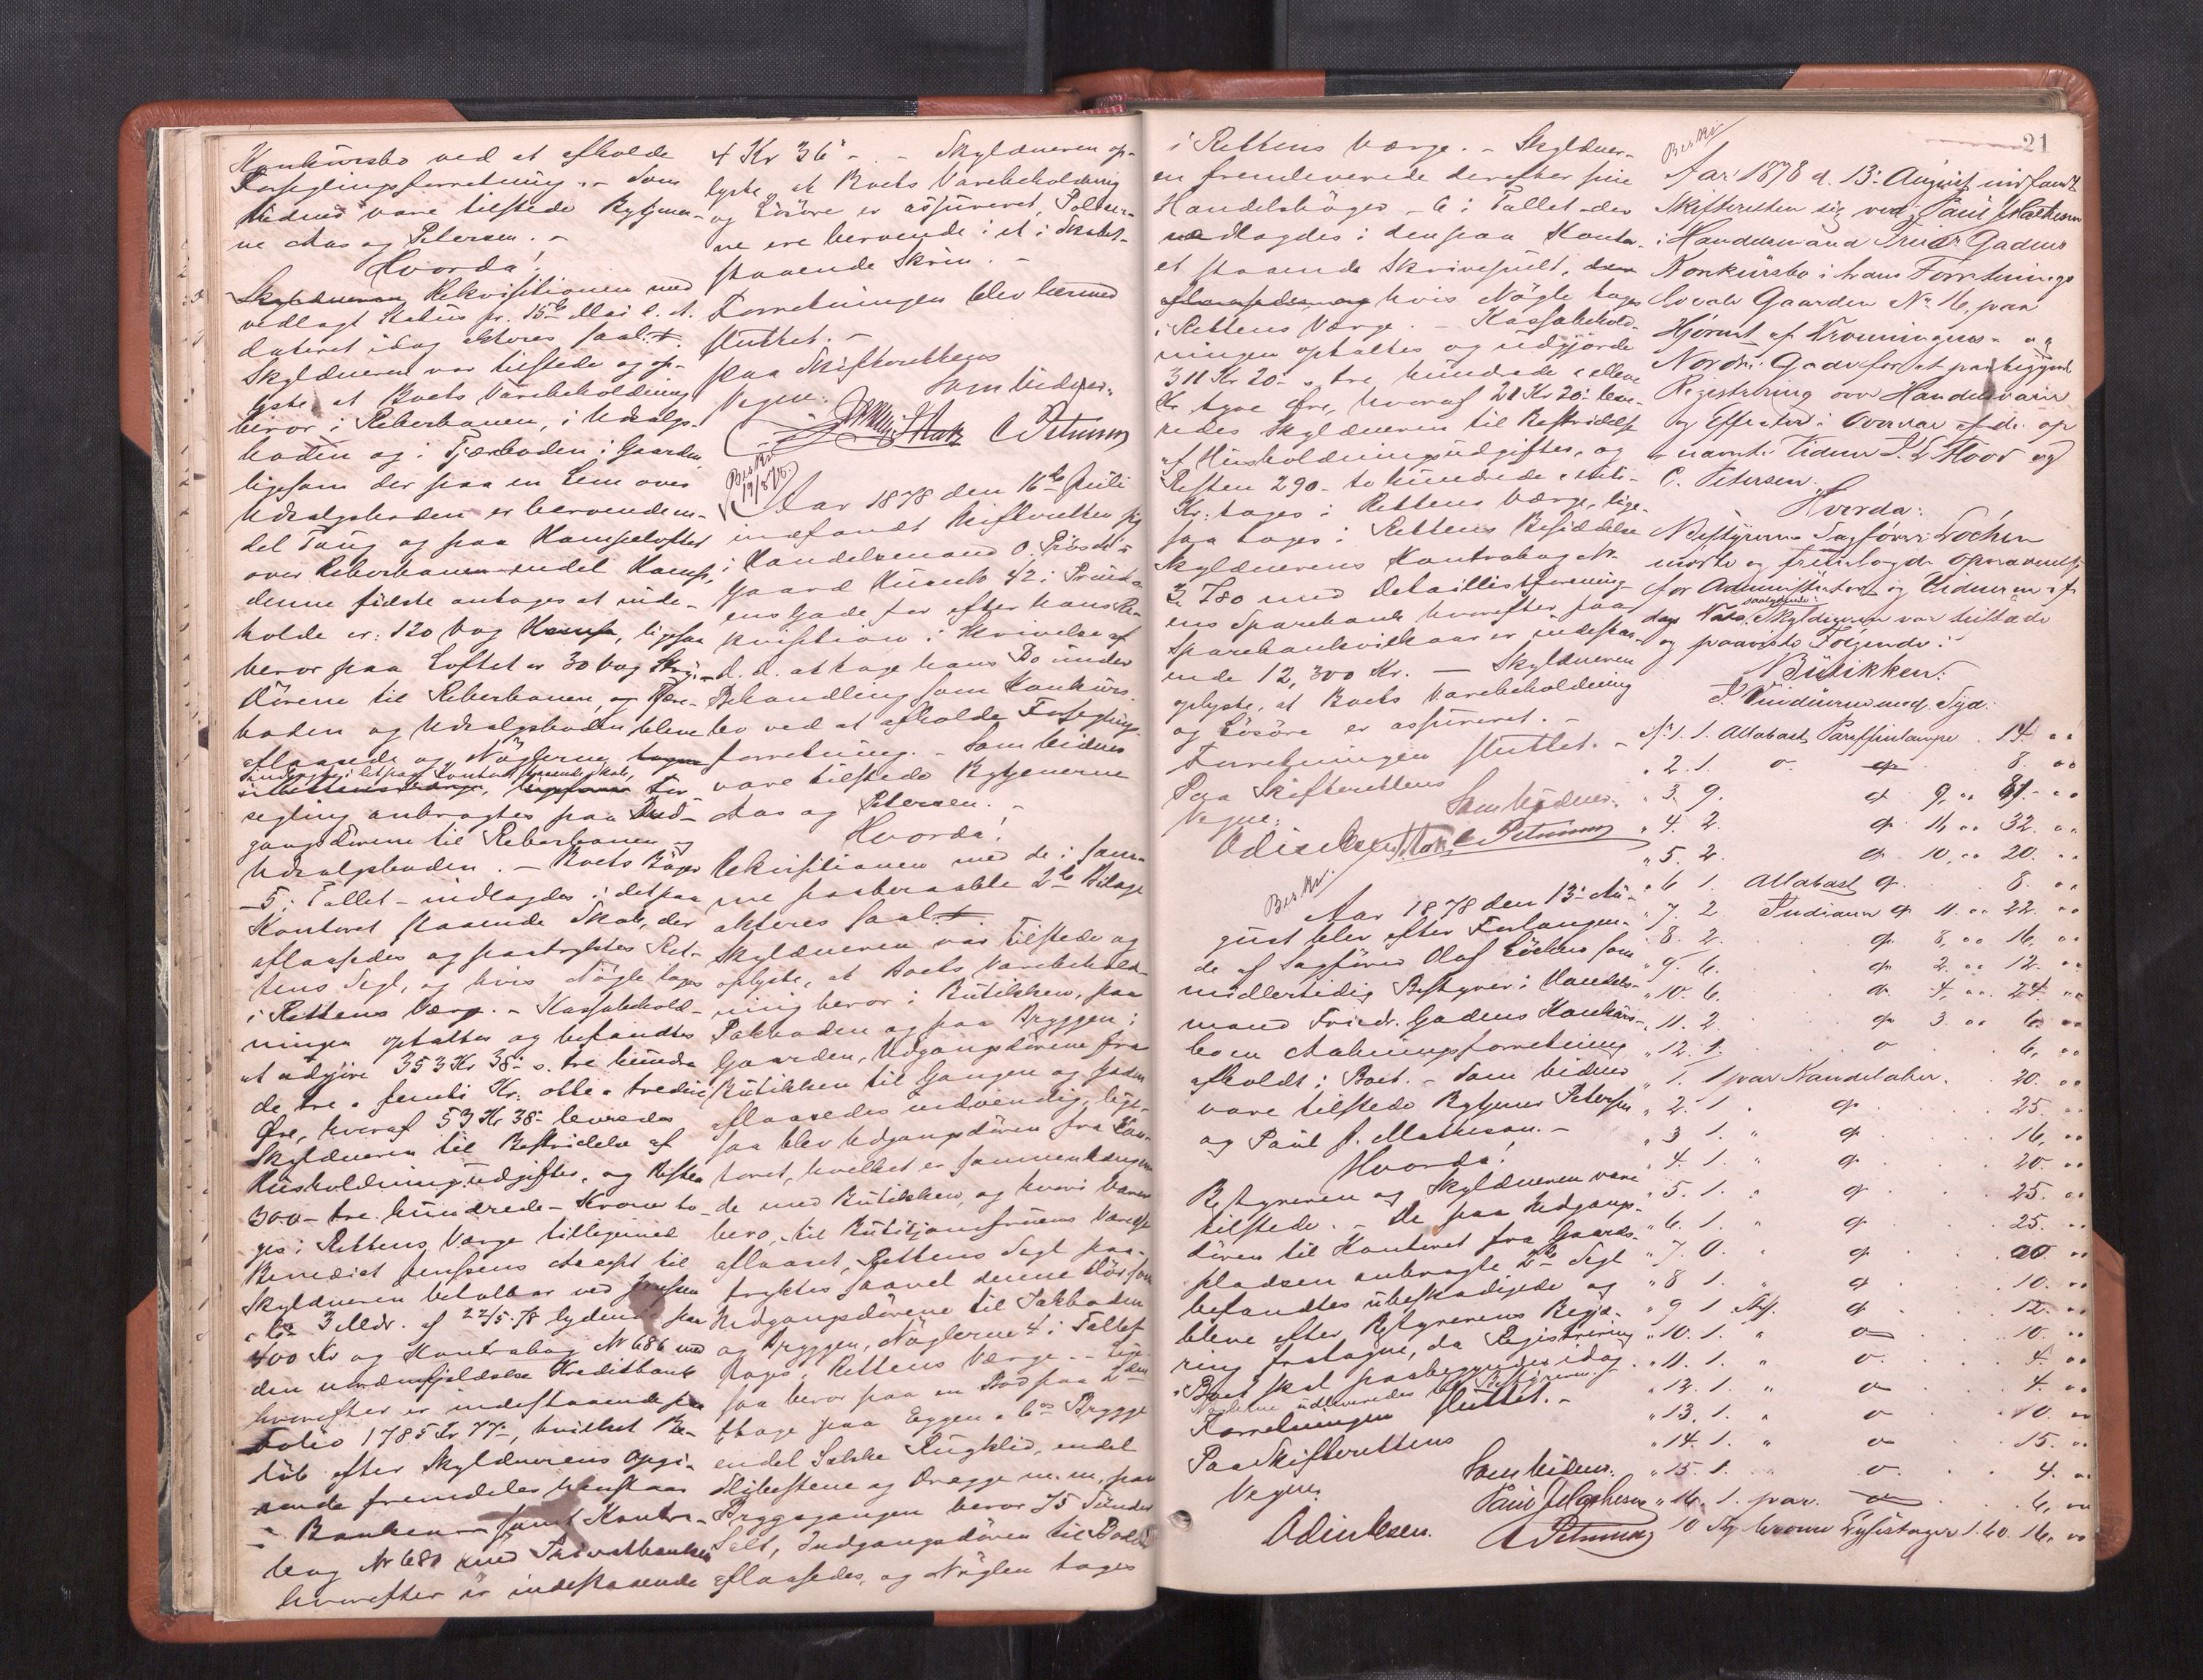 Konkursbo ved at afholde
Forseglingsforretning. – Som
Vidner vare tilstede Bytjener-
ne Aas og Petersen. –
Hvorda!
Skyldneren Rekvisitionen med
vedlagt Status pr. 15de Mai d. A.
dateret idag akteres saal.
Skyldneren var tilstede og op-
lyste, at Boets Varebeholdning
beror i Reberbanen, i Udsalgs-
boden og i Tjærboden i Gaarden,
ligesom der paa en Lem over
Udsalgsboden er beroende en-
del Taug og paa Hampeloftet
over Reberbanen endel Hamp,
denne sidste antages at inde-
holde ca. 120 Vog Hamp, ligesaa
beror paa Loftet ca 30 Vog
Dörene til Reberbanen, og Tjære-
boden og Udsalgsboden bleve
aflaasede og Nöglerne tagne
indlagte i det paa Kontoret staaende Skab,
i Rettens Værge, ligesom For
segling anbragtes paa Ind-
gangsdörene til Reberbanen og
Udsalgsboden. – Boets Böger
– 5 i Tallet – indlagdes i det paa
Kontoret staaende Skab, der
aflaasedes og paatryktes Ret-
tens Segl, og hvis Nögle toges
i Rettens Værge. – Kassabehold-
ningen optaltes og befandtes
at udgjöre 353 Kr 38 – s. tre hundre
de tre & femti Kr. otte & tredive
Öre, hvoraf 53 Kr 38 – levertes
Skyldneren til Bestridelse af
Husholdningsudgifter, og Resten
300 – tre hundrede – Kroner to-
ges i Rettens Værge tilligemed
Benedict Jenssens Accept til
Skyldneren betalbar ved Jenssen
& Co 3 Mdr. af 22/5 78 lydende paa
400 Kr og Kontrabog № 686 med
den nordenfjeldske Kreditbank
hvorefter er indestaaende paa
Folio 1785 Kr 77 –, hvilket Be-
löb efter Skyldnerens Opgi-
vende fremdeles henstaar
i Banken – samt Kontra-
bog № 680 med Privatbanken
hvorefter er indestaaende
4 Kr 36 – . – Skyldneren op-
lyste, at Boets Varebeholdning
og Lösöre er assureret, Policer-
ne ere beroende i et i Skabet
staaende Skrin. –
Forretningen blev hermed
sluttet. –
Paa Skifterettens
Vegne:
Som Vidner:
C Petersen
Beskr.
19/8 78.
Aar 1878 den 16de Juli
indfandt Skifteretten sig
i Handelsmand O.
Gaard Husnr. 42 i Prinds-
ens Gade for efter hans Re-
kvisition i Skrivelse af
d. d. at tage hans Bo under
Behandling som Konkurs
bo ved at afholde Forseglings-
forretning. – Som Vidner
vare tilstede Bytjenerne
Aas og Petersen. –
Hvorda!
Rekvisitionen med de i sam-
me paaberaabte 2de Bilage
akteres saal.
Skyldneren var tilstede og
oplyste, at Boets Varebehold-
ning beror i Butikken, paa
Pakboden og paa Bryggen i
Gaarden, Udgangsdörene fra
Butikken til Gangen og Gaden
aflaasedes indvendig, lige-
saa blev Udgangsdören fra Kon-
toret, hvilket er sammenhængen
de med Butikken, og hvori Varer
bero, til Butikjomfruens Værelse
aflaaset, Rettens Segl paa-
tryktes saavel denne Dör som
Udgangsdörene til Pakboden
og Bryggen, Nöglerne 4 i Tallet
toges i Rettens Værge. – Lige-
saa beror paa en Bod paa 2den
Etage paa Eggen & Cos Brygge
endel Sække Rugklid, endel
Slibestene og Dragge m. m. paa
Bryggegangen beror 75 Tönder
Salt, Indgangsdören til Boden
aflaasedes, og Nöglen toges
21
i Rettens Værge. – Skyldner-
en fremleverede derefter sine
Handelsböger – 6 i Tallet – der
nedlagdes i den paa Konto-
et staaende Skrivepult, den
hvis Nögle toges
i Rettens Værge. – Kassabehold-
ningen optaltes og udgjorde
311 Kr 20 – s. tre hundrede & elleve
Kr. tyve Öre, hvoraf 21 Kr 20 – leve-
redes Skyldneren til Bestridelse
af Husholdningsudgifter, og
Resten 290 – to hundrede & nitti –
Kr. toges i Rettens Værge, lige-
saa toges i Rettens Besiddelse
Skyldnerens Kontrabog №
3780 med Detaillistforening-
ens Sparebank hvorefter paa
Sparebankvilkaar er indestaa-
ende 12,300 Kr. – Skyldneren
oplyste, at Boets Varebeholdning
og Lösöre er assureret. –
Forretningen sluttet. –
Paa Skifterettens
Vegne:
Som Vidner:
C Petersen
Beskr.
Aar 1878 den 13de Au-
gust blev efter Forlangen-
de af Sagförer Olaf Löchen som
midlertidig Bestyrer i Handels-
mand Friedr. Gadens Konkurs-
bo en Aabningsforretning
afholdt i Boet. – Som Vidner
vare tilstede Bytjener Petersen
og Paul J. Mathesen. –
Hvorda!
Bestyreren og Skyldneren vare
tilstede. – De paa Udgangs-
dören til Kontoret fra Gaards-
pladsen anbragte 2de Segl
befandtes ubeskadigede og
bleve efter Bestyrerens Begjæ-
ring fratagne, da Registrering
i Boet skal paabegyndes idag.
Nöglerne udleveredes til Bestyreren.
Forretningen sluttet. –
Paa Skifterettens
Vegne:
Som Vidner:
Paul J Mathesen
C Petersen
Beskr
Aar 1878 d. 13de August indfandt
Skifteretten sig ved Paul J Mathesen
i Handelsmand Friedr Gadens
Konkursbo i hans Forretnings
Lokale Gaarden № 16, paa
Hjørnet af Dronningens- og
Nordre Gade for at paabegynde
Registrering over Handelsvarer
og Effecter i Overvær af de op
nævnte Vidner P. L. Floor og
C. Petersen.
Hvorda:
Bestyreren Sagfører Løchen
mødte og fremlagde Opnævnelse
for Administrator og Vidner af
dags Dato saalydende: Skyldneren var tilstede
og paaviste Følgende:
I Butikken:
I Vinduerne mod Syd:
№ 1. 1. Allabast Paraffinlampe . 14. „
„ 2. 1. o. do 8. „
„ 3. 9. do 9, „ 81. „
„ 4. 2. do 16, „ 32. „
„ 5. 2. do 10, „ 20. „
„ 6 1. Allabast do. 8. „
„ 7. 2 Indianer do 11. „ 22. „
„ 8. 2. do 8, „ 16, „
„ 9. 6. do 2. „ 12. „
„ 10. 6. do 4, „ 24. „
„ 11. 2. do 3. „ 6. „
„ 12. 1. o 6, „
„ 1. 1 par Kandelaber. 20. „
„ 2. 1 „ do 25. „
„ 3 1. „ do 16, „
„ 4. 1. „ do 20. „
„ 5. 1. „ do 25. „
„ 6. 1. „ do 25. „
„ 7. 0. „ do 20. „
„ 8 1. „ do 10. „
„ 9 1 Stk. do 12. „
„ 10. 1. „ o 10. „
„ 11. 1. „ o. 4. „
„ 12. 1. „ o 4. „
„ 13. 1. „ o 10. „
„ 14. 1. „ o 15. „
„ 15. 1. „ o. 4. „
„ 16. 1. par. o 6, „
10 Stk Lysestager 1.60. 16, „